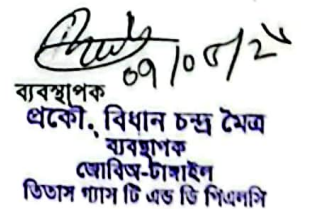 ০৭/০৫/২৫
ব্যবস্থাপক
প্রকৌ. বিধান চন্দ্র মৈত্র
ব্যবস্থাপক
জোবিঅ-টাঙ্গাইল
তিতাস গ্যাস টি এন্ড ডি পিএলসি